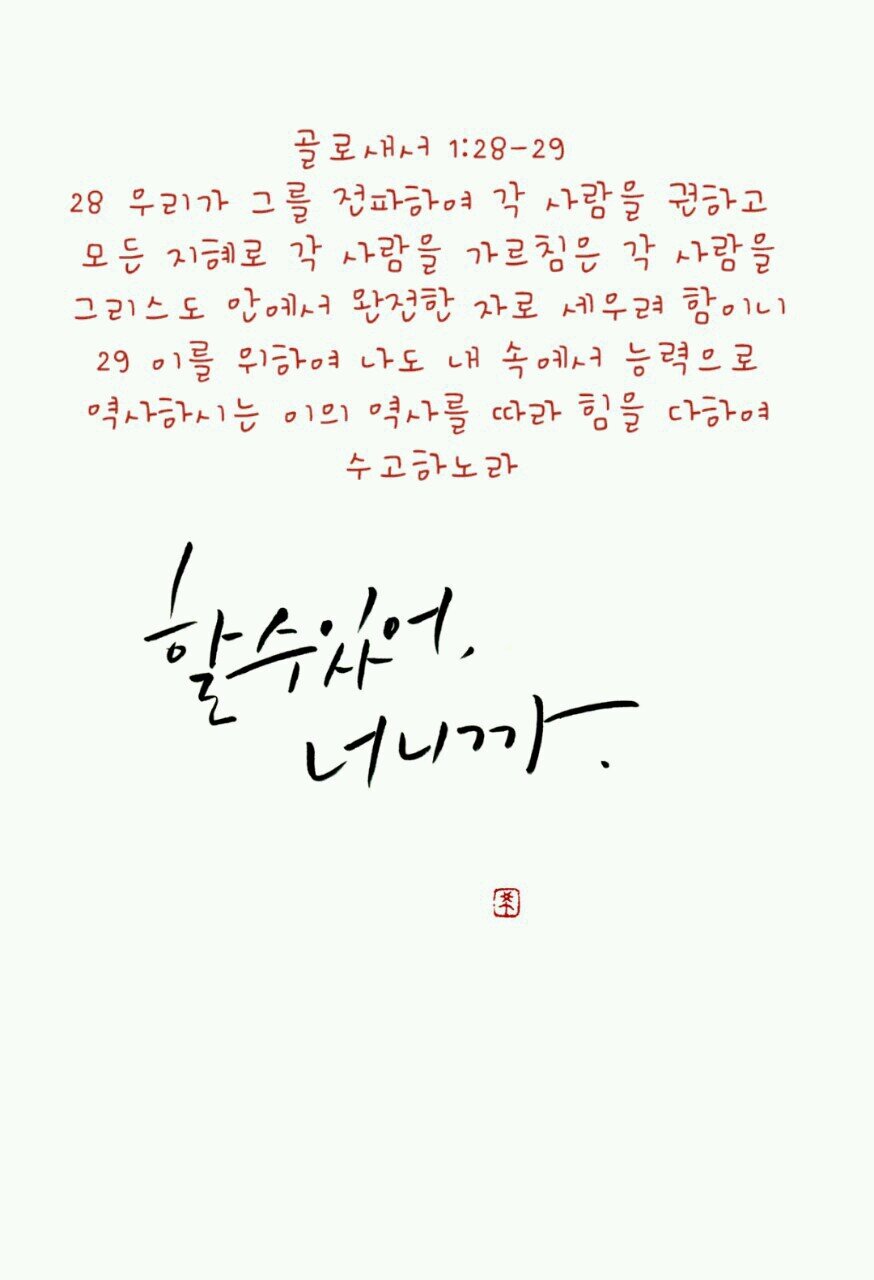 골로새서 1:28-29
28 우리가 그를 전파하여 각 사람을 권하고
모든 지혜로 각 사람을 가르침은 각 사람을
그리스도 안에서 완전한 자로 세우려 함이니
29 이를 위하여 나도 내 속에서 능력으로
역사하시는 이의 역사를 따라 힘을 다하여
수고하노라
할 수 있어,
너니까.